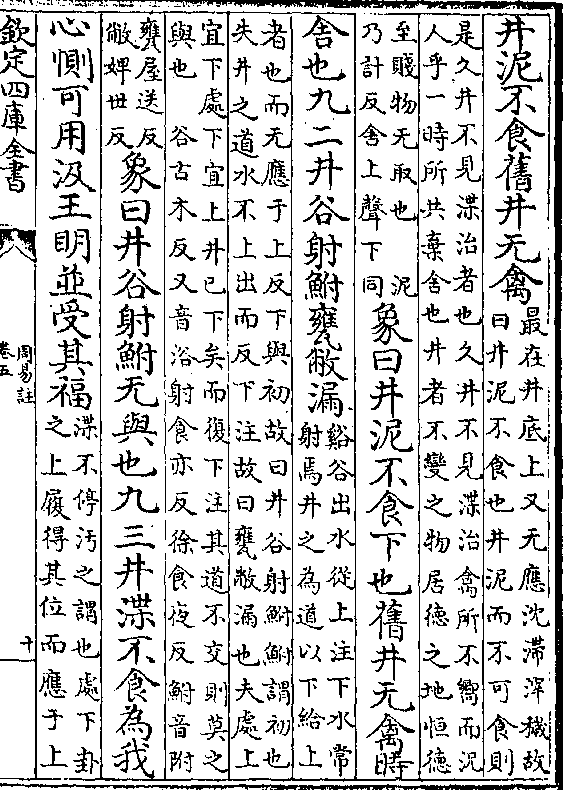 井泥不食舊井无禽最在井底上又无應沈滯滓穢故
曰井泥不食也井泥而不可食則
是久井不見渫治者也久井不見渫治禽所不嚮而況
人乎一時所共棄舍也井者不變之物居德之地恒德
至賤物无取也　泥
乃計反舍上聲下同
象曰井泥不食下也舊井无禽時
舍也九二井谷射鮒甕敝漏谿谷出水從上注下水常
射焉井之為道以下給上
者也而无應于上反下與初故曰井谷射鮒鮒謂初也
失井之道水不上出而反下注故曰甕敝漏也夫處上
宜下處下宜上井已下矣而復下注其道不交則莫之
與也　谷古木反又音浴射食亦反徐食夜反鮒音附
甕屋送反
敝婢世反
象曰井谷射鮒无與也九三井渫不食為我
心惻可用汲王明並受其福渫不停汚之謂也處下卦
之上履得其位而應于上
欽定四庫全書
周易註
卷五
十